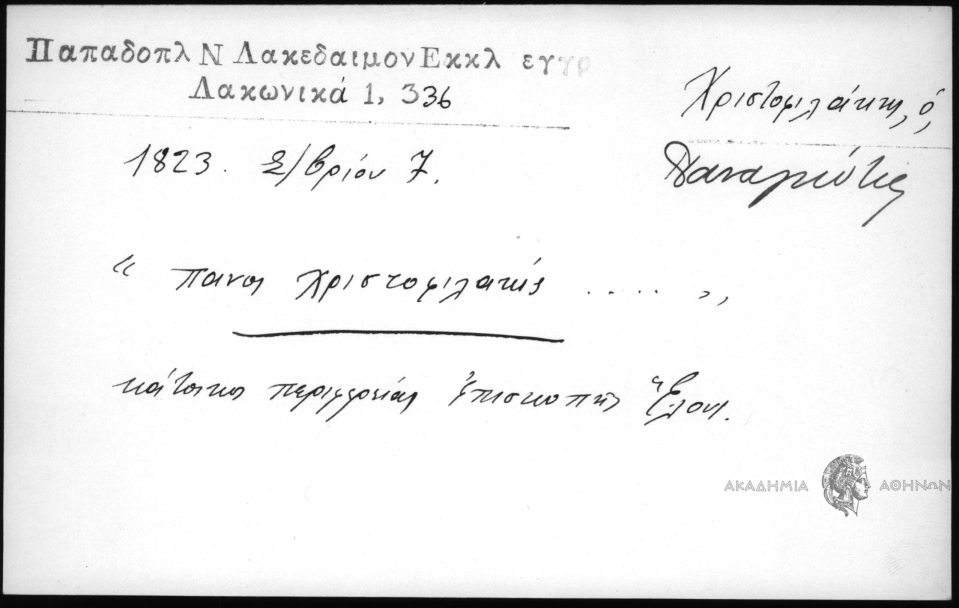 Παπαδοπλ Ν ΛακεδαιμονΕκκλ εγγρ
Λακωνικά 1, 336
Χριστοφιλάκης, ὁ,
Παναγιώτης
1823. Σ/βρίου 7.
“ πανος χριστοφιλακης ..... ”,
κάτοικος περιφερείας Ἐπισκοπῆς Ἕλους.
ΑΚΑΔΗΜΙΑ ΑΘΗΝΩΝ